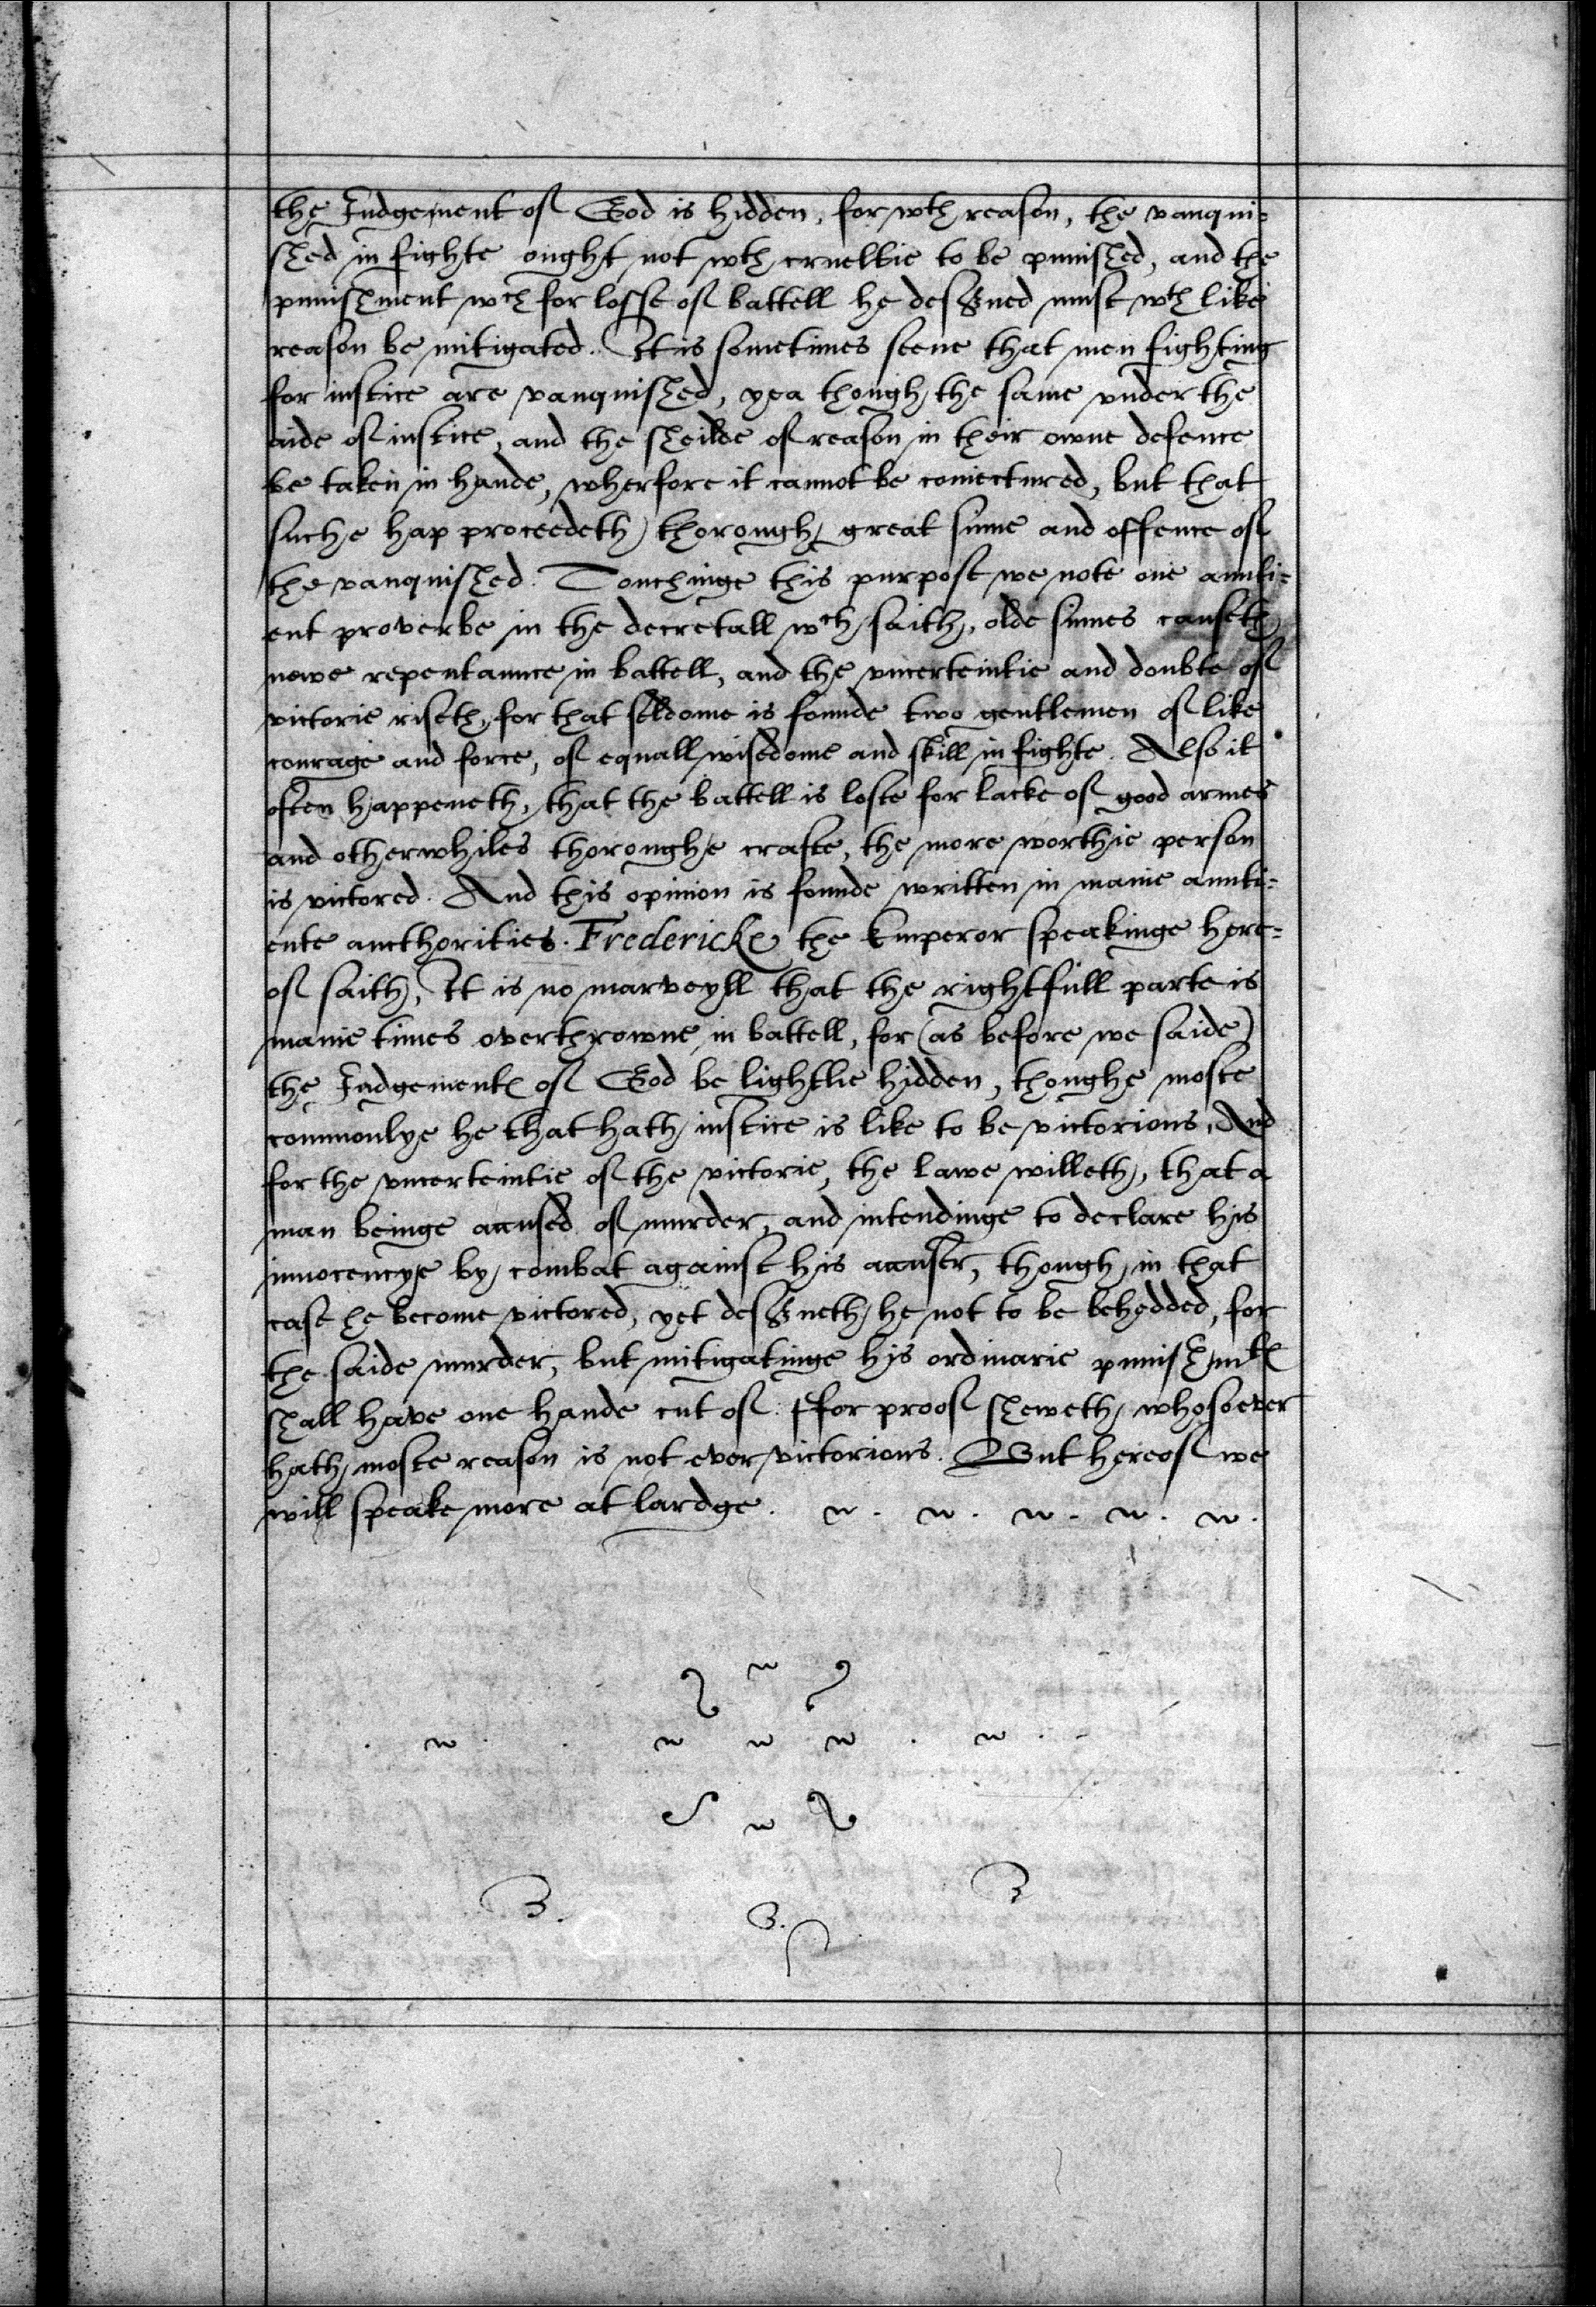 the Judgement of God is hidden, for wth reason, the vanqui=
shed in fighte ought not wth crueltie to be punished, and the
punishment wch for losse of battell he des&ued must wth like
reason be mitigated. It is sometimes seene that men fighting
for iustice are vanquished, yea though the same vnder the
aide of iustice, and the sheilde of reason in their owne defence
be taken in hande, wherfore it cannot be coniectured, but that
suche hap proceedeth thorough great sinne and offence of
the vanquished. Touchinge this purpose we note one aunti=
ent proverbe in the decretall wch saith, olde sinnes causeth
newe repentaunce in battell, and the vncerteintie and doubte of
victorie riseth, for that seldome is founde two gentlemen of like
courage and force, of equall wisedome and skill in fighte. Also it
often happeneth, that the battell is loste for lacke of good armes
and otherwhiles thoroughe crafte, the more worthie person
is victored. And this opinion is founde written in manie aunti=
ente aucthorities. Fredericke the Emperor speakinge here=
of saith, It is no marveyll that the rightfull parte is
manie times overthrowne in battell, for (as before we saide)
the Judgementes of God be lightlie hidden, thoughe moste
commonlye he that hath iustice is like to be victorious, And
for the vncerteintie of the victorie, the lawe willeth, that a
man beinge accused of murder, and intendinge to declare his
innocencye by combat against his accuser, though in that
case he become victored, yet des&ueth he not to be behedded, for
the saide murder, but mitigatinge his ordinarie punishmtes
shall have one hande cut of. ffor proof sheweth, whosoever
hath moste reason is not ever victorious. But hereof we
will speake more at lardge.